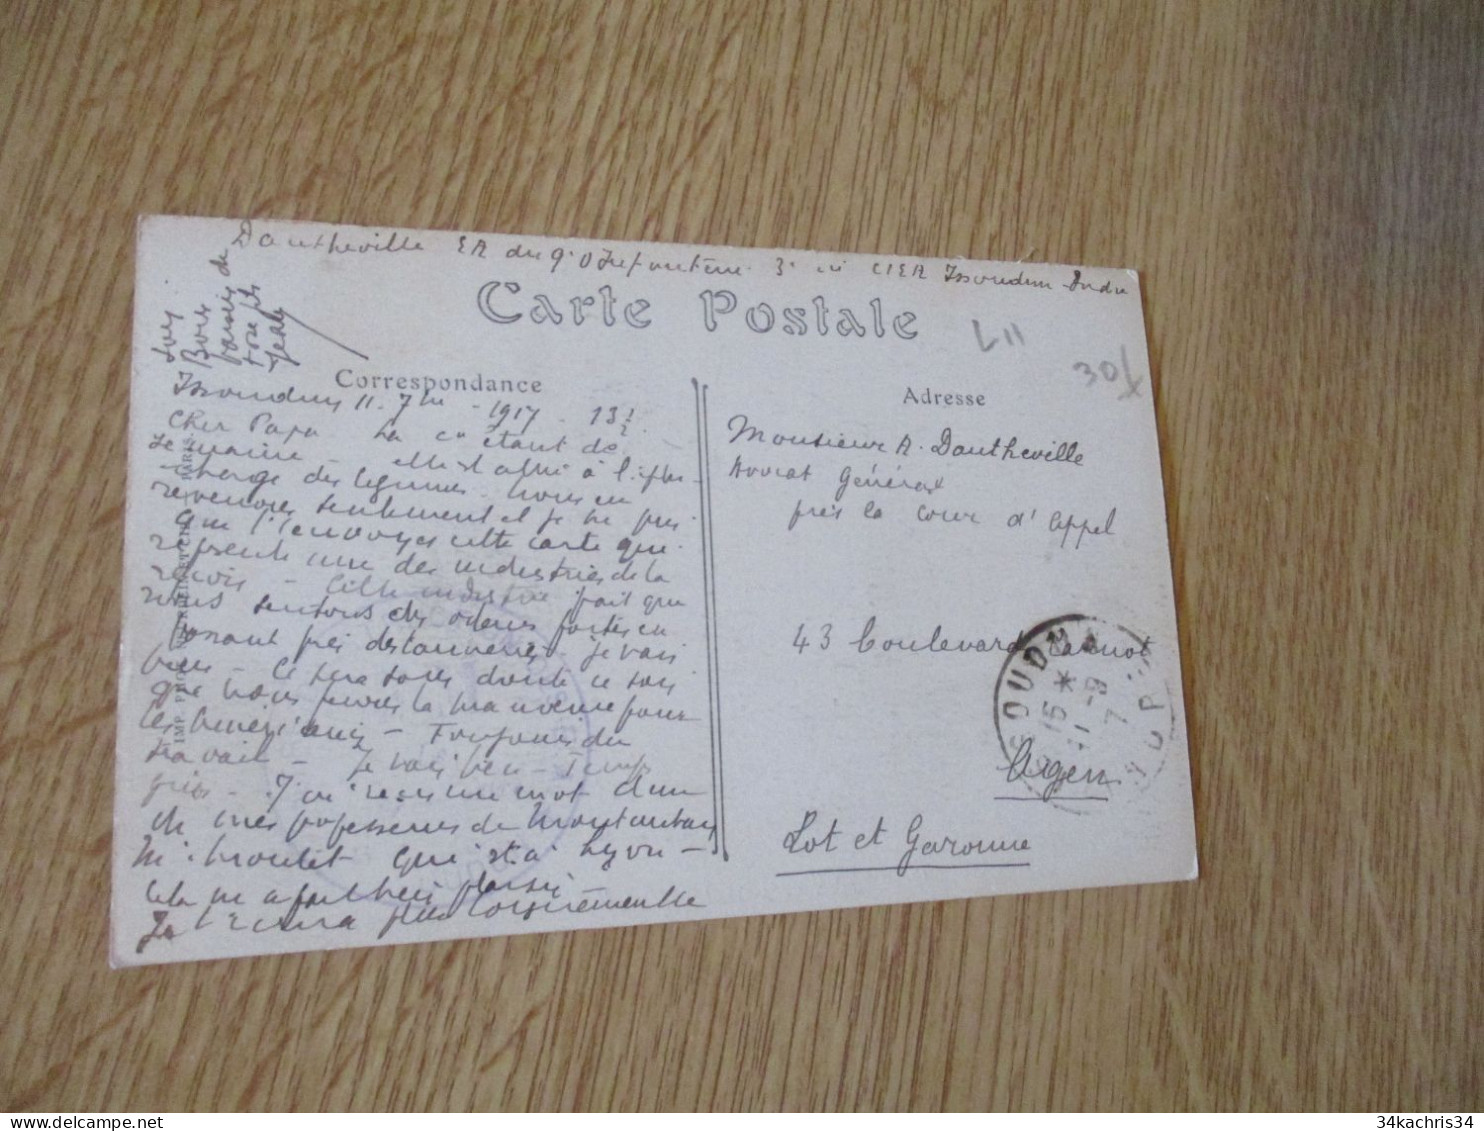 Dautheville EA du 9e d'Infanterie 3e cie CIEA Issoudun Indre
Carte Postale
Correspondance
Adresse
Issoudun 11. 7bre - 1917 - 13h 1/2
Cher Papa La cie étant de
semaine - elle st aussi à l'éplu-
chage des légumes. Nous en
revenons seulement et je ne puis
que t'envoyer cette carte qui
représente une des industries de la
- Cette industrie fait que
nous sentons des odeurs fortes en
passant près des tanneries - Je vais
bien - Ce sera sans doute ce soir
que nous ferons la manœuvre pour
les américains - Toujours du
travail - Je vais bien - Temps
gris - J'ai reçu un mot d'un
de mes professeurs de Montauban
M. qui st à Lyon -
Cela m'a fait bien plaisir
Je t'écrirai plus longuement
Bons baisers de
Monsieur A. Dautheville
Avocat Général
près la Cour d'Appel
43 Boulevard Carnot
Agen
Lot et Garonne
ISSOUDUN
15 *
11 - 9
17
30
34kachris34